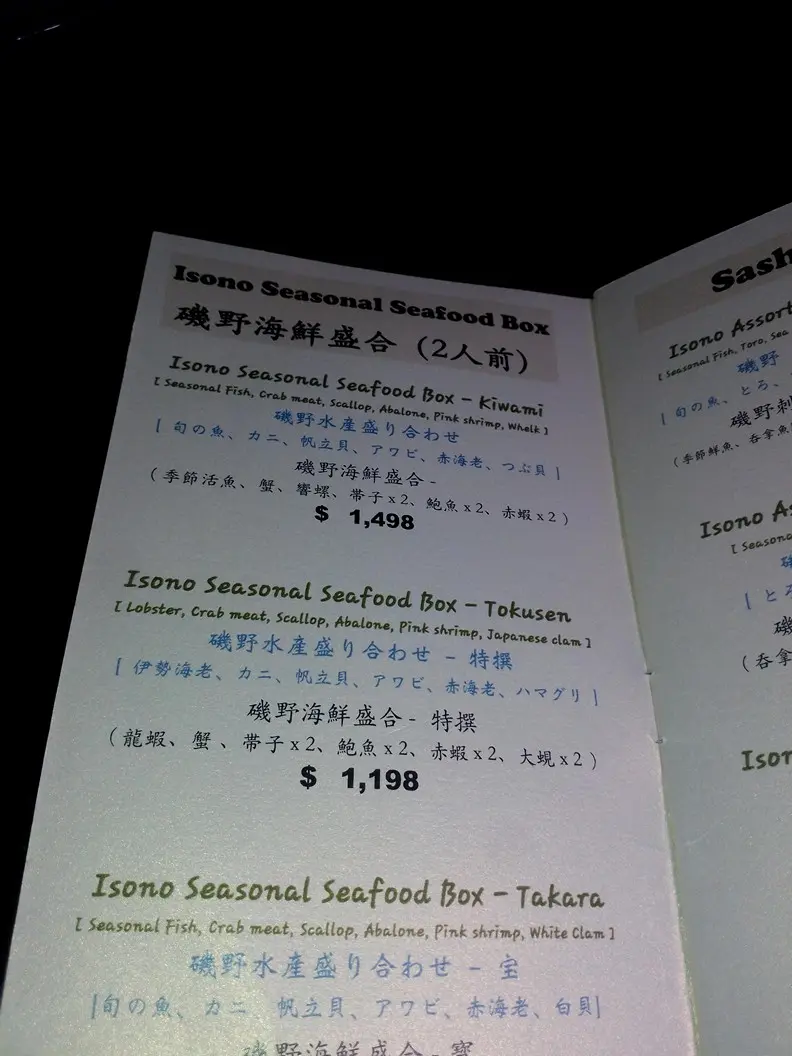 Isono Seasonal Seafood Box
磯野海鮮盛合 (2人前)
Isono Seasonal Seafood Box - Kiwami
[ Seasonal Fish, Crab meat, Scallop, Abalone, Pink shrimp, Whelk ]
磯野水産盛り合わせ
[ 旬の魚、カニ、帆立貝、アワビ、赤海老、つぶ貝 ]
磯野海鮮盛合 -
(季節活魚、蟹、響螺、帯子x2、鮑魚x2、赤蝦x2)
$ 1,498
Isono Seasonal Seafood Box - Tokusen
[ Lobster, Crab meat, Scallop, Abalone, Pink shrimp, Japanese clam ]
磯野水産盛り合わせ - 特撰
[ 伊勢海老、カニ、帆立貝、アワビ、赤海老、ハマグリ ]
磯野海鮮盛合 - 特撰
(龍蝦、蟹、帯子x2、鮑魚x2、赤蝦x2、大蜆x2)
$ 1,198
Isono Seasonal Seafood Box - Takara
[ Seasonal Fish, Crab meat, Scallop, Abalone, Pink shrimp, White Clam ]
磯野水産盛り合わせ - 宝
[旬の魚、カニ、帆立貝、アワビ、赤海老、白貝]
磯野海鮮盛合 - 寶
Sash
Isono Assort
[ Seasonal Fish, Toro, Sea
磯野
[ 旬の魚、とろ、
磯野刺
(季節鮮魚、吞拿魚
Isono As
[ Seasona
[ とろ
磯
(吞拿
Ison